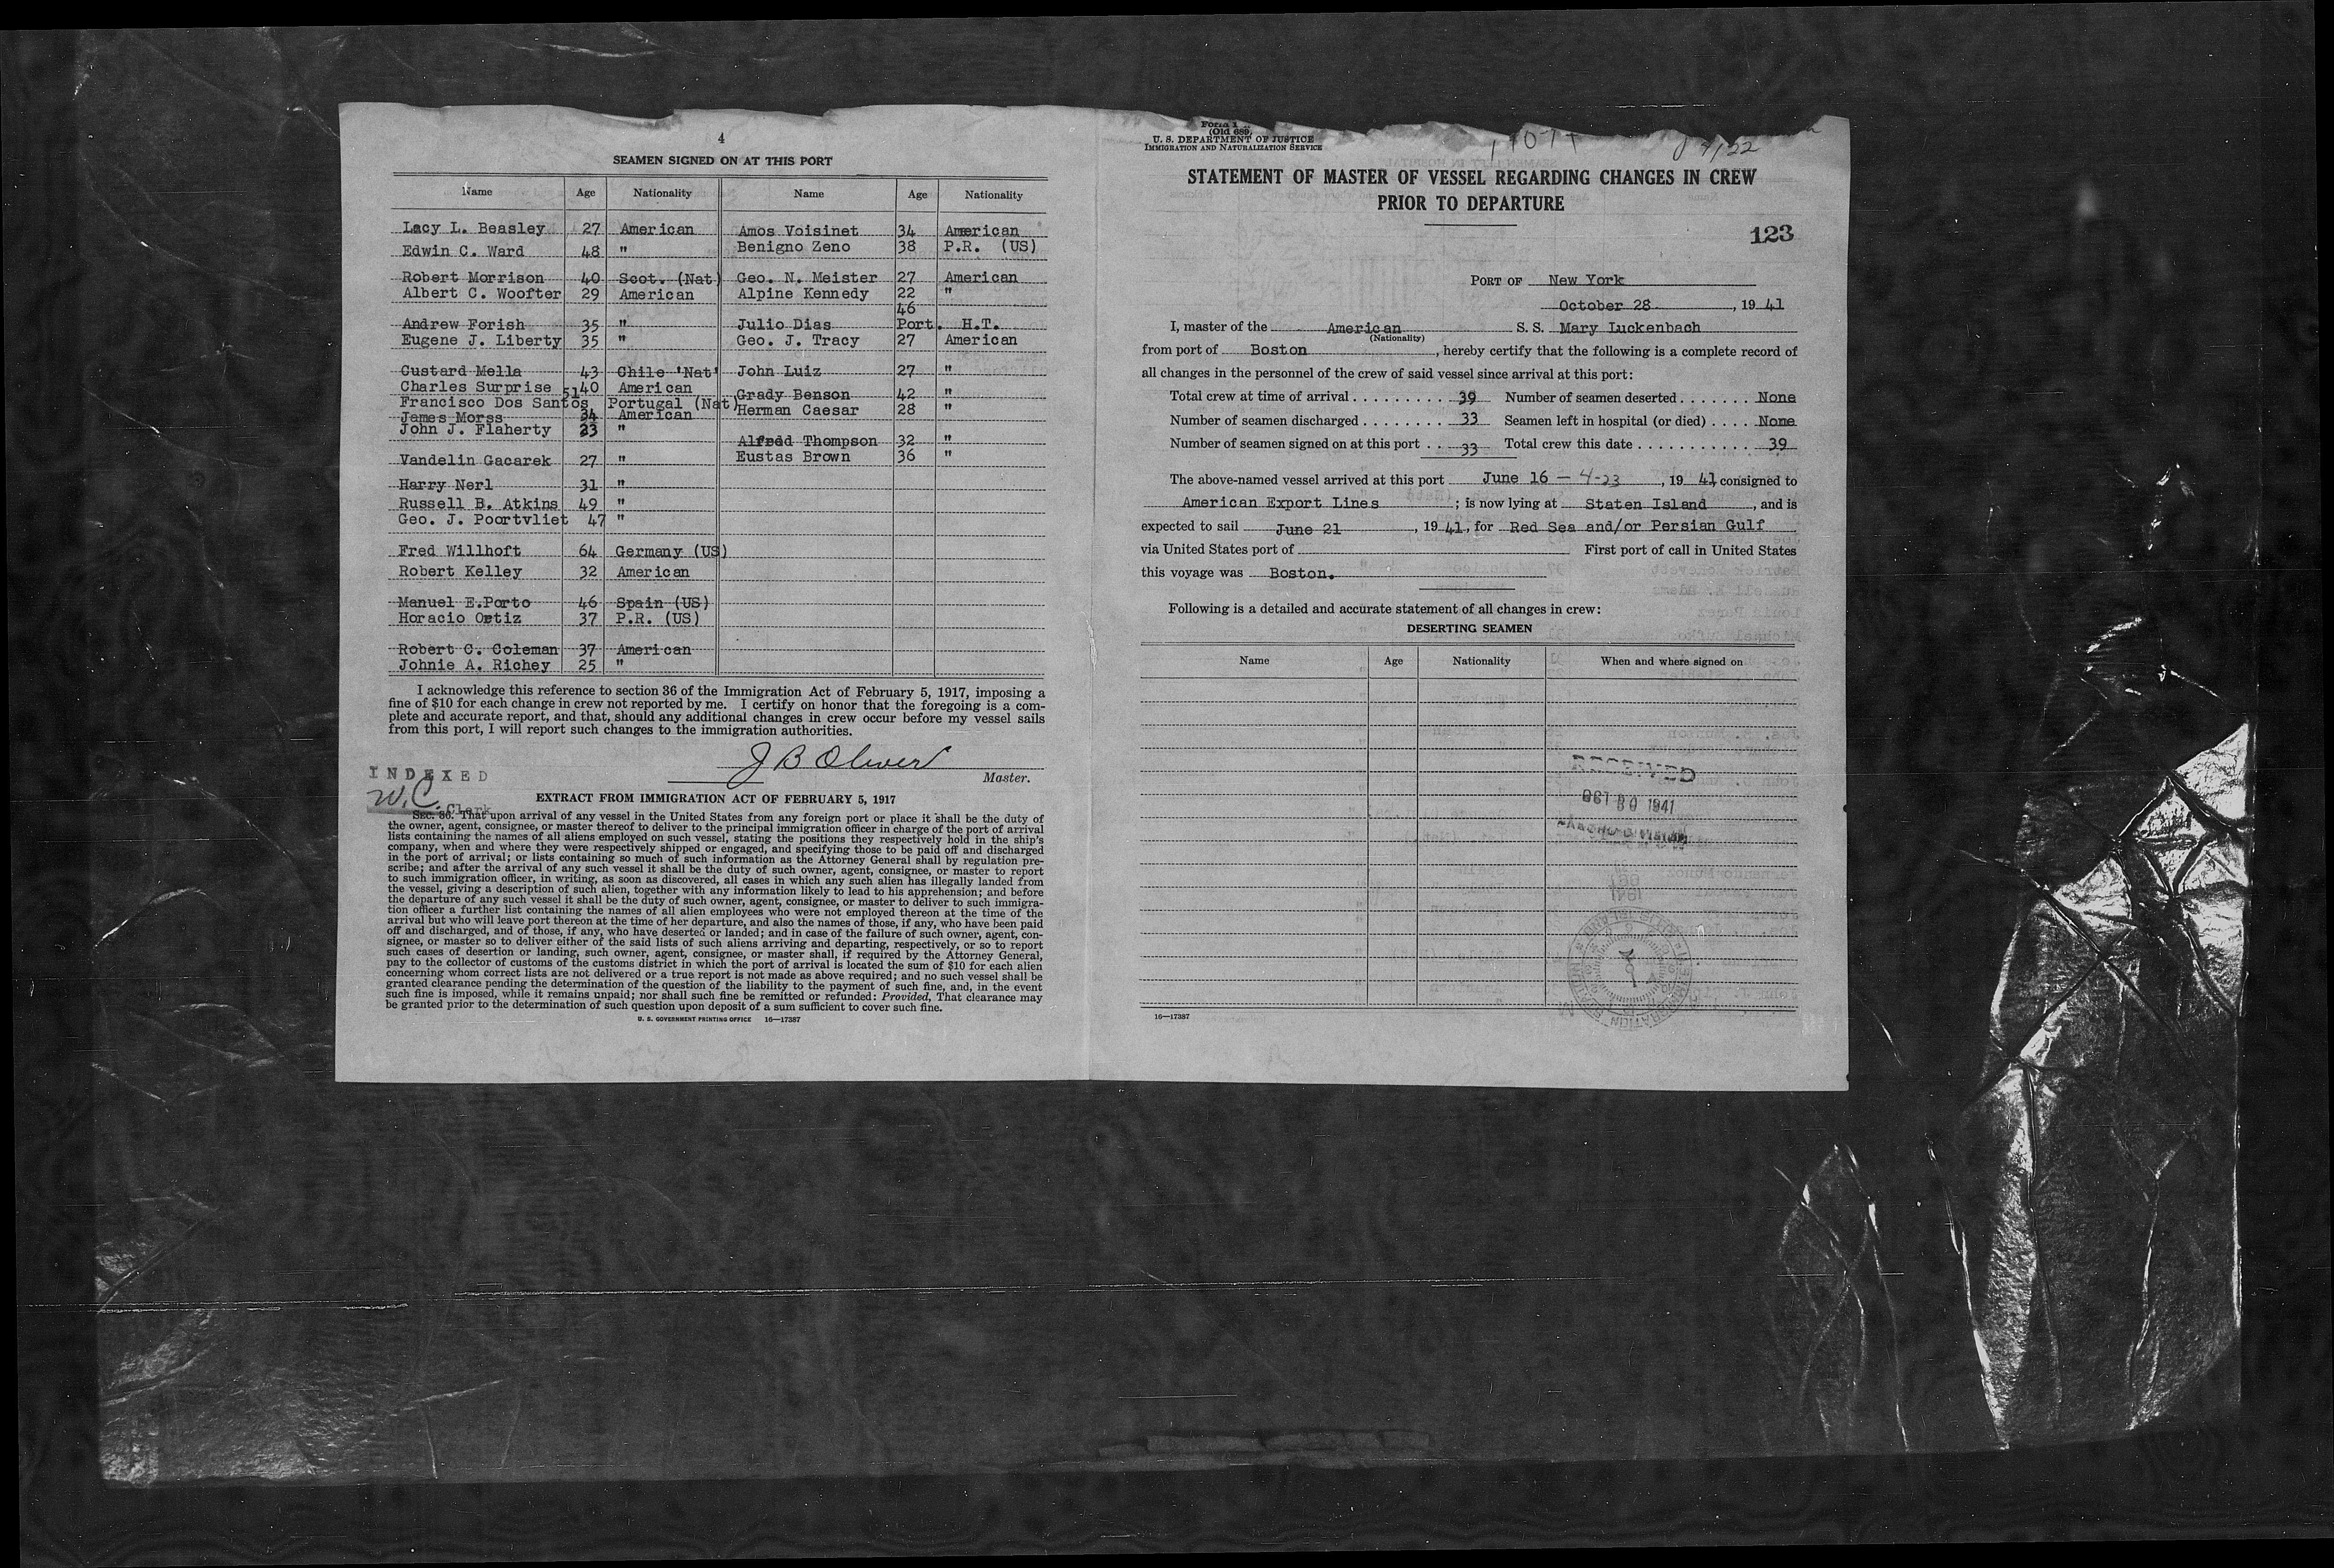 4
SEAMEN SIGNED ON AT THIS PORT
Name Age Nationality Name Age Nationality
Lacy L. Beasley 27 American Amos Voisinet 34 American
Edwin C. Ward 48 " Benigno Zeno 38 P.R. (US)
Robert Morrison 40 Scot. (Nat) Geo. N. Meister 27 American
Albert C. Woofter 29 American Alpine Kennedy 22 "
46
Andrew Forish 35 " Julio Dias Port. H.T.
Eugene J. Liberty 35 " Geo. J. Tracy 27 American
Custard Mella 43 Chile 'Nat' John Luiz 27 "
Charles Surprise 40 American Grady Benson 42 "
Francisco Dos Santos 51 Portugal (Nat) Herman Caesar 28 "
James Morss 34 American
John J. Flaherty 23 " Alfred Thompson 32 "
Vandelin Gacarek 27 " Eustas Brown 36 "
Harry Nerl 31 "
Russell B. Atkins 49 "
Geo. J. Poortvliet 47 "
Fred Willhoft 64 Germany (US)
Robert Kelley 32 American
Manuel E.Porto 46 Spain (US)
Horacio Ortiz 37 P.R. (US)
Robert C. Coleman 37 American
Johnie A. Richey 25 "
I acknowledge this reference to section 36 of the Immigration Act of February 5, 1917, imposing a
fine of $10 for each change in crew not reported by me. I certify on honor that the foregoing is a com-
plete and accurate report, and that, should any additional changes in crew occur before my vessel sails
from this port, I will report such changes to the immigration authorities.
J B Oliver
Master.
INDEXED
W.C.
Clerk
EXTRACT FROM IMMIGRATION ACT OF FEBRUARY 5, 1917
SEC. 36. That upon arrival of any vessel in the United States from any foreign port or place it shall be the duty of
the owner, agent, consignee, or master thereof to deliver to the principal immigration officer in charge of the port of arrival
lists containing the names of all aliens employed on such vessel, stating the positions they respectively hold in the ship's
company, when and where they were respectively shipped or engaged, and specifying those to be paid off and discharged
in the port of arrival; or lists containing so much of such information as the Attorney General shall by regulation pre-
scribe; and after the arrival of any such vessel it shall be the duty of such owner, agent, consignee, or master to report
to such immigration officer, in writing, as soon as discovered, all cases in which any such alien has illegally landed from
the vessel, giving a description of such alien, together with any information likely to lead to his apprehension; and before
the departure of any such vessel it shall be the duty of such owner, agent, consignee, or master to deliver to such immigra-
tion officer a further list containing the names of all alien employees who were not employed thereon at the time of the
arrival but who will leave port thereon at the time of her departure, and also the names of those, if any, who have been paid
off and discharged, and of those, if any, who have deserted or landed; and in case of the failure of such owner, agent, con-
signee, or master so to deliver either of the said lists of such aliens arriving and departing, respectively, or so to report
such cases of desertion or landing, such owner, agent, consignee, or master shall, if required by the Attorney General,
pay to the collector of customs of the customs district in which the port of arrival is located the sum of $10 for each alien
concerning whom correct lists are not delivered or a true report is not made as above required; and no such vessel shall be
granted clearance pending the determination of the question of the liability to the payment of such fine, and, in the event
such fine is imposed, while it remains unpaid; nor shall such fine be remitted or refunded: Provided, That clearance may
be granted prior to the determination of such question upon deposit of a sum sufficient to cover such fine.
U. S. GOVERNMENT PRINTING OFFICE 16—17387
(Old 689)
U. S. DEPARTMENT OF JUSTICE
IMMIGRATION AND NATURALIZATION SERVICE
STATEMENT OF MASTER OF VESSEL REGARDING CHANGES IN CREW
PRIOR TO DEPARTURE
123
PORT OF New York
October 28, 1941
I, master of the American S. S. Mary Luckenbach
(Nationality)
from port of Boston, hereby certify that the following is a complete record of
all changes in the personnel of the crew of said vessel since arrival at this port:
Total crew at time of arrival . . . . . . . . . . 39 Number of seamen deserted . . . . . . . None
Number of seamen discharged . . . . . . . . 33 Seamen left in hospital (or died) . . . . None
Number of seamen signed on at this port . . 33 Total crew this date . . . . . . . . . . . . 39
The above-named vessel arrived at this port June 16 — 4-23, 1941, consigned to
American Export Lines; is now lying at Staten Island, and is
expected to sail June 21, 1941, for Red Sea and/or Persian Gulf
via United States port of First port of call in United States
this voyage was Boston.
Following is a detailed and accurate statement of all changes in crew:
DESERTING SEAMEN
Name Age Nationality When and where signed on
RECEIVED
OCT 30 1941
16—17387